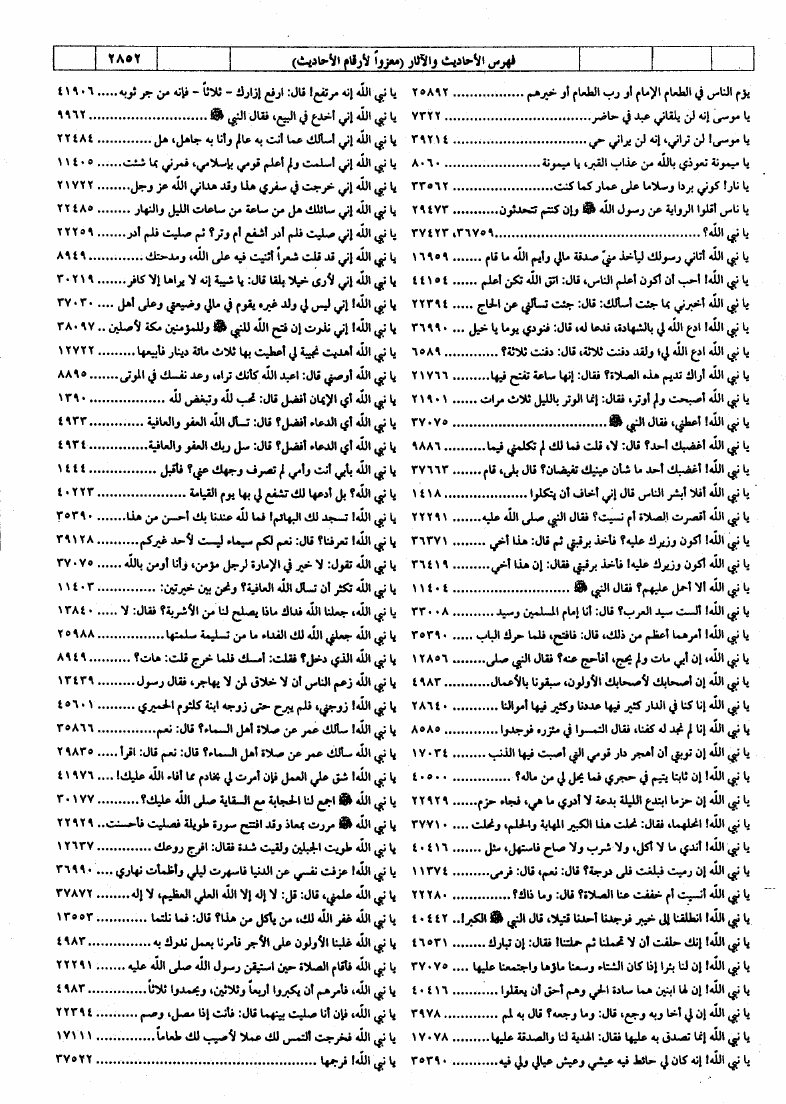 فهرس الأحاديث والآثار (معزواً لأرقام الأحاديث)
٢٨٥٢
يؤم الناس في الطعام الإمام أو رب الطعام أو خيرهم ................. ٢٥٨٩٢
يا موسى إنه لن يلقاني عبد في حاضر ................. ٧٣٢٢
يا موسى! لن تراني، إنه لن يراني حي ................. ٣٩٢١٤
يا ميمونة تعوذي بالله من عذاب القبر، يا ميمونة ................. ٨٠٦٠
يا نار! كوني بردا وسلاما على عمار كما كنت ................. ٣٣٥٦٢
يا ناس أقلوا الرواية عن رسول الله ﷺ وإن كنتم تتحدثون ........... ٢٩٤٧٣
يا نبي الله؟ ................. ٣٦٧٥٩، ٣٧٤٢٣
يا نبي الله أتاني رسولك ليأخذ منّي صدقة مالي وأيم الله ما قام ....... ١٦٩٥٩
يا نبي الله! أحب أن أكون أعلم الناس، قال: اتق الله تكن أعلم ...... ٤٤١٥٤
يا نبي الله أخبرني بما جئت أسألك: قال: جئت تسألني عن الحاج ..... ٢٢٣٩٤
يا نبي الله! ادع الله لي بالشهادة، فدعا له، قال: فنودي يوما يا خيل ... ٣٦٩٩٠
يا نبي الله ادع الله لي؛ ولقد دفنت ثلاثة، قال: دفنت ثلاثة؟ ......... ٦٥٨٩
يا نبي الله أراك تديم هذه الصلاة؟ فقال: إنها ساعة تفتح فيها ........ ٢١٧٦٦
يا نبي الله أصبحت ولم أوتر، فقال: إنما الوتر بالليل ثلاث مرات ...... ٢١٩٠١
يا نبي الله! أعطني، فقال النبي ﷺ ................. ٣٧٠٧٥
يا نبي الله أغضبك أحد؟ قال: لا، قلت فما لك لم تكلمني فيما ........ ٩٨٨٦
يا نبي الله! أغضبك أحد ما شأن عينيك تفيضان؟ قال بلى، قام ..... ٣٧٦٦٣
يا نبي الله أفلا أبشر الناس قال إني أخاف أن يتكلوا ................. ١٤١٨
يا نبي الله أقصرت الصلاة أم نسيت؟ فقال النبي صلى الله عليه ....... ٢٢٢٩١
يا نبي الله! أكون وزيرك عليه؟ فأخذ برقبتي ثم قال: هذا أخي ....... ٣٦٣٧١
يا نبي الله أكون وزيرك عليه! فأخذ برقبتي فقال: إن هذا أخي ....... ٣٦٤١٩
يا نبي الله ألا أحمل عليهم؟ فقال النبي ﷺ ................. ١١٤٠٤
يا نبي الله! ألست سيد العرب؟ قال: أنا إمام المسلمين وسيد .......... ٣٣٠٠٨
يا نبي الله! أمرهما أعظم من ذلك، قال: فافتح، فلما حرك الباب ..... ٣٥٣٩٠
يا نبي الله، إن أبي مات ولم يحج، أفأحج عنه؟ فقال النبي صلى ........ ١٢٨٥٦
يا نبي الله إن أصحابك لأصحابك الأولون، سبقونا بالأعمال .......... ٤٩٨٣
يا نبي الله إنا كنا في الدار كثير فيها عددنا وكثير فيها أموالنا .......... ٢٨٦٤٠
يا نبي الله إنا لم نجد له كفنا، فقال التمسوا في مئزره فوجدوا .......... ٨٥٨٥
يا نبي الله إن توبتي أن أهجر دار قومي التي أصبت فيها الذنب ....... ١٧٠٣٤
يا نبي الله! إن ثابتا يتيم في حجري فما يحل لي من ماله؟ ............. ٤٠٥٠٠
يا نبي الله إن حزما ابتدع الليلة بدعة لا أدري ما هي، فجاء حزم ..... ٢٢٩٢٩
يا نبي الله! انحلهما، فقال: نحلت هذا الكبير المهابة والحلم، ونحلت .... ٣٧٧١٠
يا نبي الله! أندي ما لا أكل، ولا شرب ولا صاح فاستهل، مثل ...... ٤٠٤١٦
يا نبي الله إن رميت فبلغت فلى درجة؟ قال: نعم، قال: فرمى ........ ١١٣٧٤
يا نبي الله أنسيت أم خففت عنا الصلاة؟ قال: وما ذاك؟ ............ ٢٢٢٨٠
يا نبي الله! انطلقنا إلى خيبر فوجدنا أحدنا قتيلا، قال النبي ﷺ الكبر! .. ٤٠٤٤٢
يا نبي الله! إنك حلفت أن لا تحملنا ثم حملتنا! فقال: إن تبارك ....... ٤٦٥٣١
يا نبي الله! إن لنا بئرا إذا كان الشتاء وسعنا ماؤها واجتمعنا عليها .... ٣٧٠٧٥
يا نبي الله! إن لها ابنين هما سادة الحي وهم أحق أن يعقلوا ........... ٤٠٤١٦
يا نبي الله إن لي أخا وبه وجع، قال: وما وجعه؟ قال: به لمم ......... ٣٩٧٨
يا نبي الله إنما تصدق به عليها فقال: الهدية لنا والصدقة عليها ......... ١٧٠٧٨
يا نبي الله! إنه كان لي حائط فيه عيشي وعيش عيالي ولي فيه ......... ٣٥٣٩٠
يا نبي الله إنه مرتفع! قال: ارفع إزارك - ثلاثاً - فإنه من جر ثوبه ..... ٤١٩٠٦
يا نبي الله إني أخدع في البيع، فقال النبي ﷺ ................. ٩٩٦٢
يا نبي الله إني أسألك عما أنت به عالم وأنا به جاهل، هل ............ ٢٢٤٨٤
يا نبي الله إني أسلمت ولم أعلم قومي بإسلامي، فمرني بما شئت ...... ١١٤٠٥
يا نبي الله إني خرجت في سفري هذا وقد هداني الله عز وجل ........ ٢١٧٢٢
يا نبي الله إني سائلك هل من ساعة من ساعات الليل والنهار ........ ٢٢٤٨٥
يا نبي الله إني صليت فلم أدر أشفع أم وتر؟ ثم صليت فلم أدر ........ ٢٢٢٥٩
يا نبي الله إني قد قلت شعراً أثنيت فيه على الله، ومدحتك ............ ٨٩٤٩
يا نبي الله إني لأرى خيلا بلقا قال: يا شيبة إنه لا يراها إلا كافر ....... ٣٠٢١٩
يا نبي الله! إني ليس لي ولد غيره يقوم في مالي وضيعتي وعلى أهل .... ٣٧٠٣٠
يا نبي الله! إني نذرت إن فتح الله للنبي ﷺ وللمؤمنين مكة لأصلين .. ٣٨٠٩٧
يا نبي الله أهديت نجيبة لي أعطيت بها ثلاث مائة دينار فأبيعها ........ ١٢٧٢٢
يا نبي الله أوصني قال: اعبد الله كأنك تراه، وعد نفسك في الموتى ..... ٨٨٩٥
يا نبي الله أي الإيمان أفضل قال: تحب لله وتبغض لله ................ ١٣٩٠
يا نبي الله أي الدعاء أفضل؟ قال: تسأل الله العفو والعافية ........... ٤٩٣٣
يا نبي الله أي الدعاء أفضل؟ قال: سل ربك العفو والعافية ........... ٤٩٣٤
يا نبي الله بأبي أنت وأمي لم تصرف وجهك عني؟ فأقبل ............. ١٤٤٤
يا نبي الله؟ بل أدعها لك تشفع لي بها يوم القيامة ................. ٤٠٢٢٣
يا نبي الله! تسجد لك البهائم! فما لله عندنا بك أحسن من هذا ....... ٣٥٣٩٠
يا نبي الله! تعرفنا؟ قال: نعم لكم سيماء ليست لأحد غيركم ......... ٣٩١٢٨
يا نبي الله تقول: لا خير في الإمارة لرجل مؤمن، وأنا أومن بالله ...... ٣٧٠٧٥
يا نبي الله تكثر أن تسأل الله العافية؟ ونحن بين خيرتين: ............. ١١٤٠٣
يا نبي الله، جعلنا الله فداك ماذا يصلح لنا من الأشربة؟ فقال: لا ..... ١٣٨٤٠
يا نبي الله جعلني الله لك الفداء ما من تسليمة سلمتها ............... ٢٥٩٨٨
يا نبي الله الذي دخل؟ فقلت: أمسك فلما خرج قلت: هات؟ ........ ٨٩٤٩
يا نبي الله زعم الناس أن لا خلاق لمن لا يهاجر، فقال رسول ........ ١٣٤٣٩
يا نبي الله! زوجني، فلم يبرح حتى زوجه ابنة كلثوم الحميري ......... ٤٥٦٠١
يا نبي الله! سألك عمر عن صلاة أهل السماء؟ قال: نعم ............. ٣٥٨٦٦
يا نبي الله سألك عمر عن صلاة أهل السماء؟ قال: نعم قال: اقرأ ..... ٢٩٨٣٥
يا نبي الله! شق علي العمل فإن أمرت لي بخادم بما أفاء الله عليك! .... ٤١٩٧٦
يا نبي الله ﷺ اجمع لنا الحجابة مع السقاية صلى الله عليك؟ .......... ٣٠١٧٧
يا نبي الله ﷺ مررت بمعاذ وقد افتتح سورة طويلة فصليت فأحسنت .. ٢٢٩٢٩
يا نبي الله طويت الجبلين ولقيت شدة فقال: افرج روعك ............ ١٢٦٣٧
يا نبي الله! عزفت نفسي عن الدنيا فاسهرت ليلي وأظمأت نهاري .... ٣٦٩٩٠
يا نبي الله علمني، قال: قل: لا إله إلا الله العلي العظيم، لا إله ......... ٣٧٨٧٢
يا نبي الله غفر الله لك، من يأكل من هذا؟ قال: فما نلتما ............ ١٣٥٥٣
يا نبي الله غلبنا الأولون على الأجر فأمرنا بعمل ندرك به ............ ٤٩٨٣
يا نبي الله فأقام الصلاة حين استيقن رسول الله صلى الله عليه ........ ٢٢٢٩١
يا نبي الله، فأمرهم أن يكبروا أربعاً وثلاثين، ويحمدوا ثلاثاً ............ ٤٩٨٣
يا نبي الله، فإن أنا صليت بينهما قال: فأنت إذا مصل، وصم ......... ٢٢٣٩٤
يا نبي الله فخرجت ألتمس لك عملا لأصيب لك طعاماً ............... ١٧١١١
يا نبي الله! فرجها ................. ٣٧٥٢٢